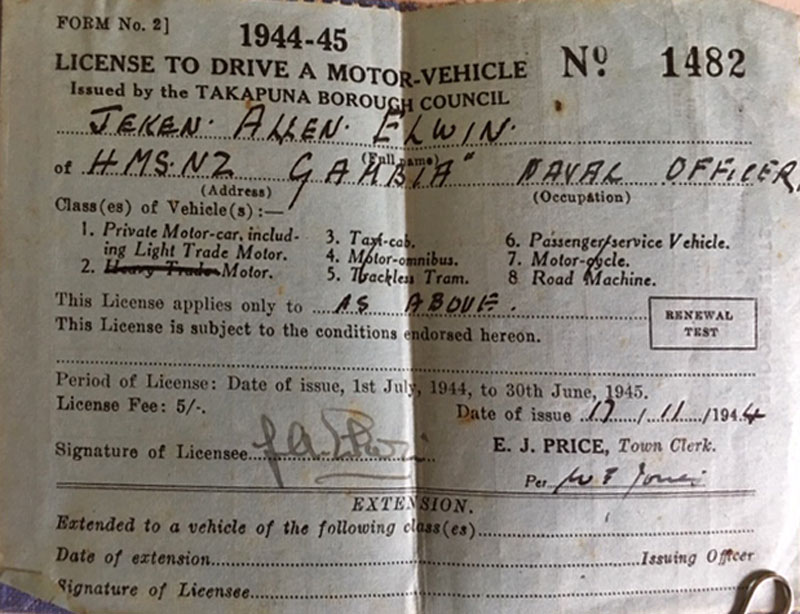 FORM No. 2]
1944-45
LICENSE TO DRIVE A MOTOR-VEHICLE Nº 1482
Issued by the TAKAPUNA BOROUGH COUNCIL
JEKEN. ALLEN. ELWIN.
(Full name)
of H.M.S.NZ GAMBIA" NAVAL OFFICER
(Address) (Occupation)
Class(es) of Vehicle(s):—
1. Private Motor-car, includ-
ing Light Trade Motor.
2. Heavy Trade Motor.
3. Taxi-cab.
4. Motor-omnibus.
5. Trackless Tram.
6. Passenger-service Vehicle.
7. Motor-cycle.
8 Road Machine.
This License applies only to AS ABOVE.
RENEWAL
TEST
This License is subject to the conditions endorsed hereon.
Period of License: Date of issue, 1st July, 1944, to 30th June, 1945.
License Fee: 5/-.
Date of issue 17/11/1944
Signature of Licensee
E. J. PRICE, Town Clerk.
Per
EXTENSION.
Extended to a vehicle of the following class(es)
Date of extension Issuing Officer
Signature of Licensee